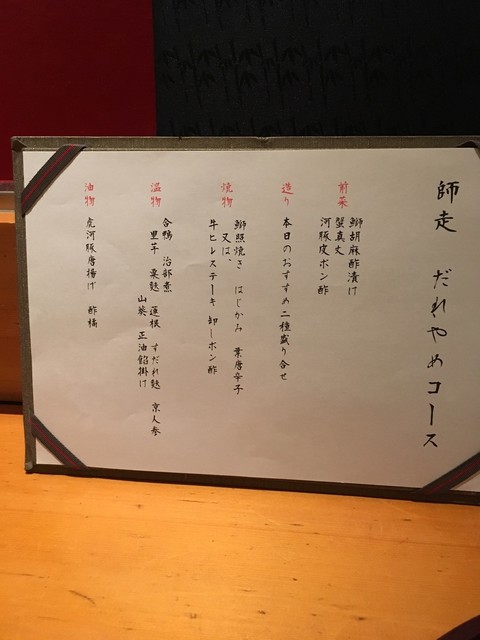 師走　だれやめコース
前菜
鰤胡麻酢漬け
蟹真丈
河豚皮ポン酢
造り
本日のおすすめ二種盛り合せ
焼物
鰤照焼き　はじかみ　葉唐辛子
又は、
牛ヒレステーキ　卸しポン酢
温物
合鴨　治部煮
里芋　粟麩　蓮根　すだれ麩　京人参
山葵　正油餡掛け
油物
虎河豚唐揚げ　酢橘